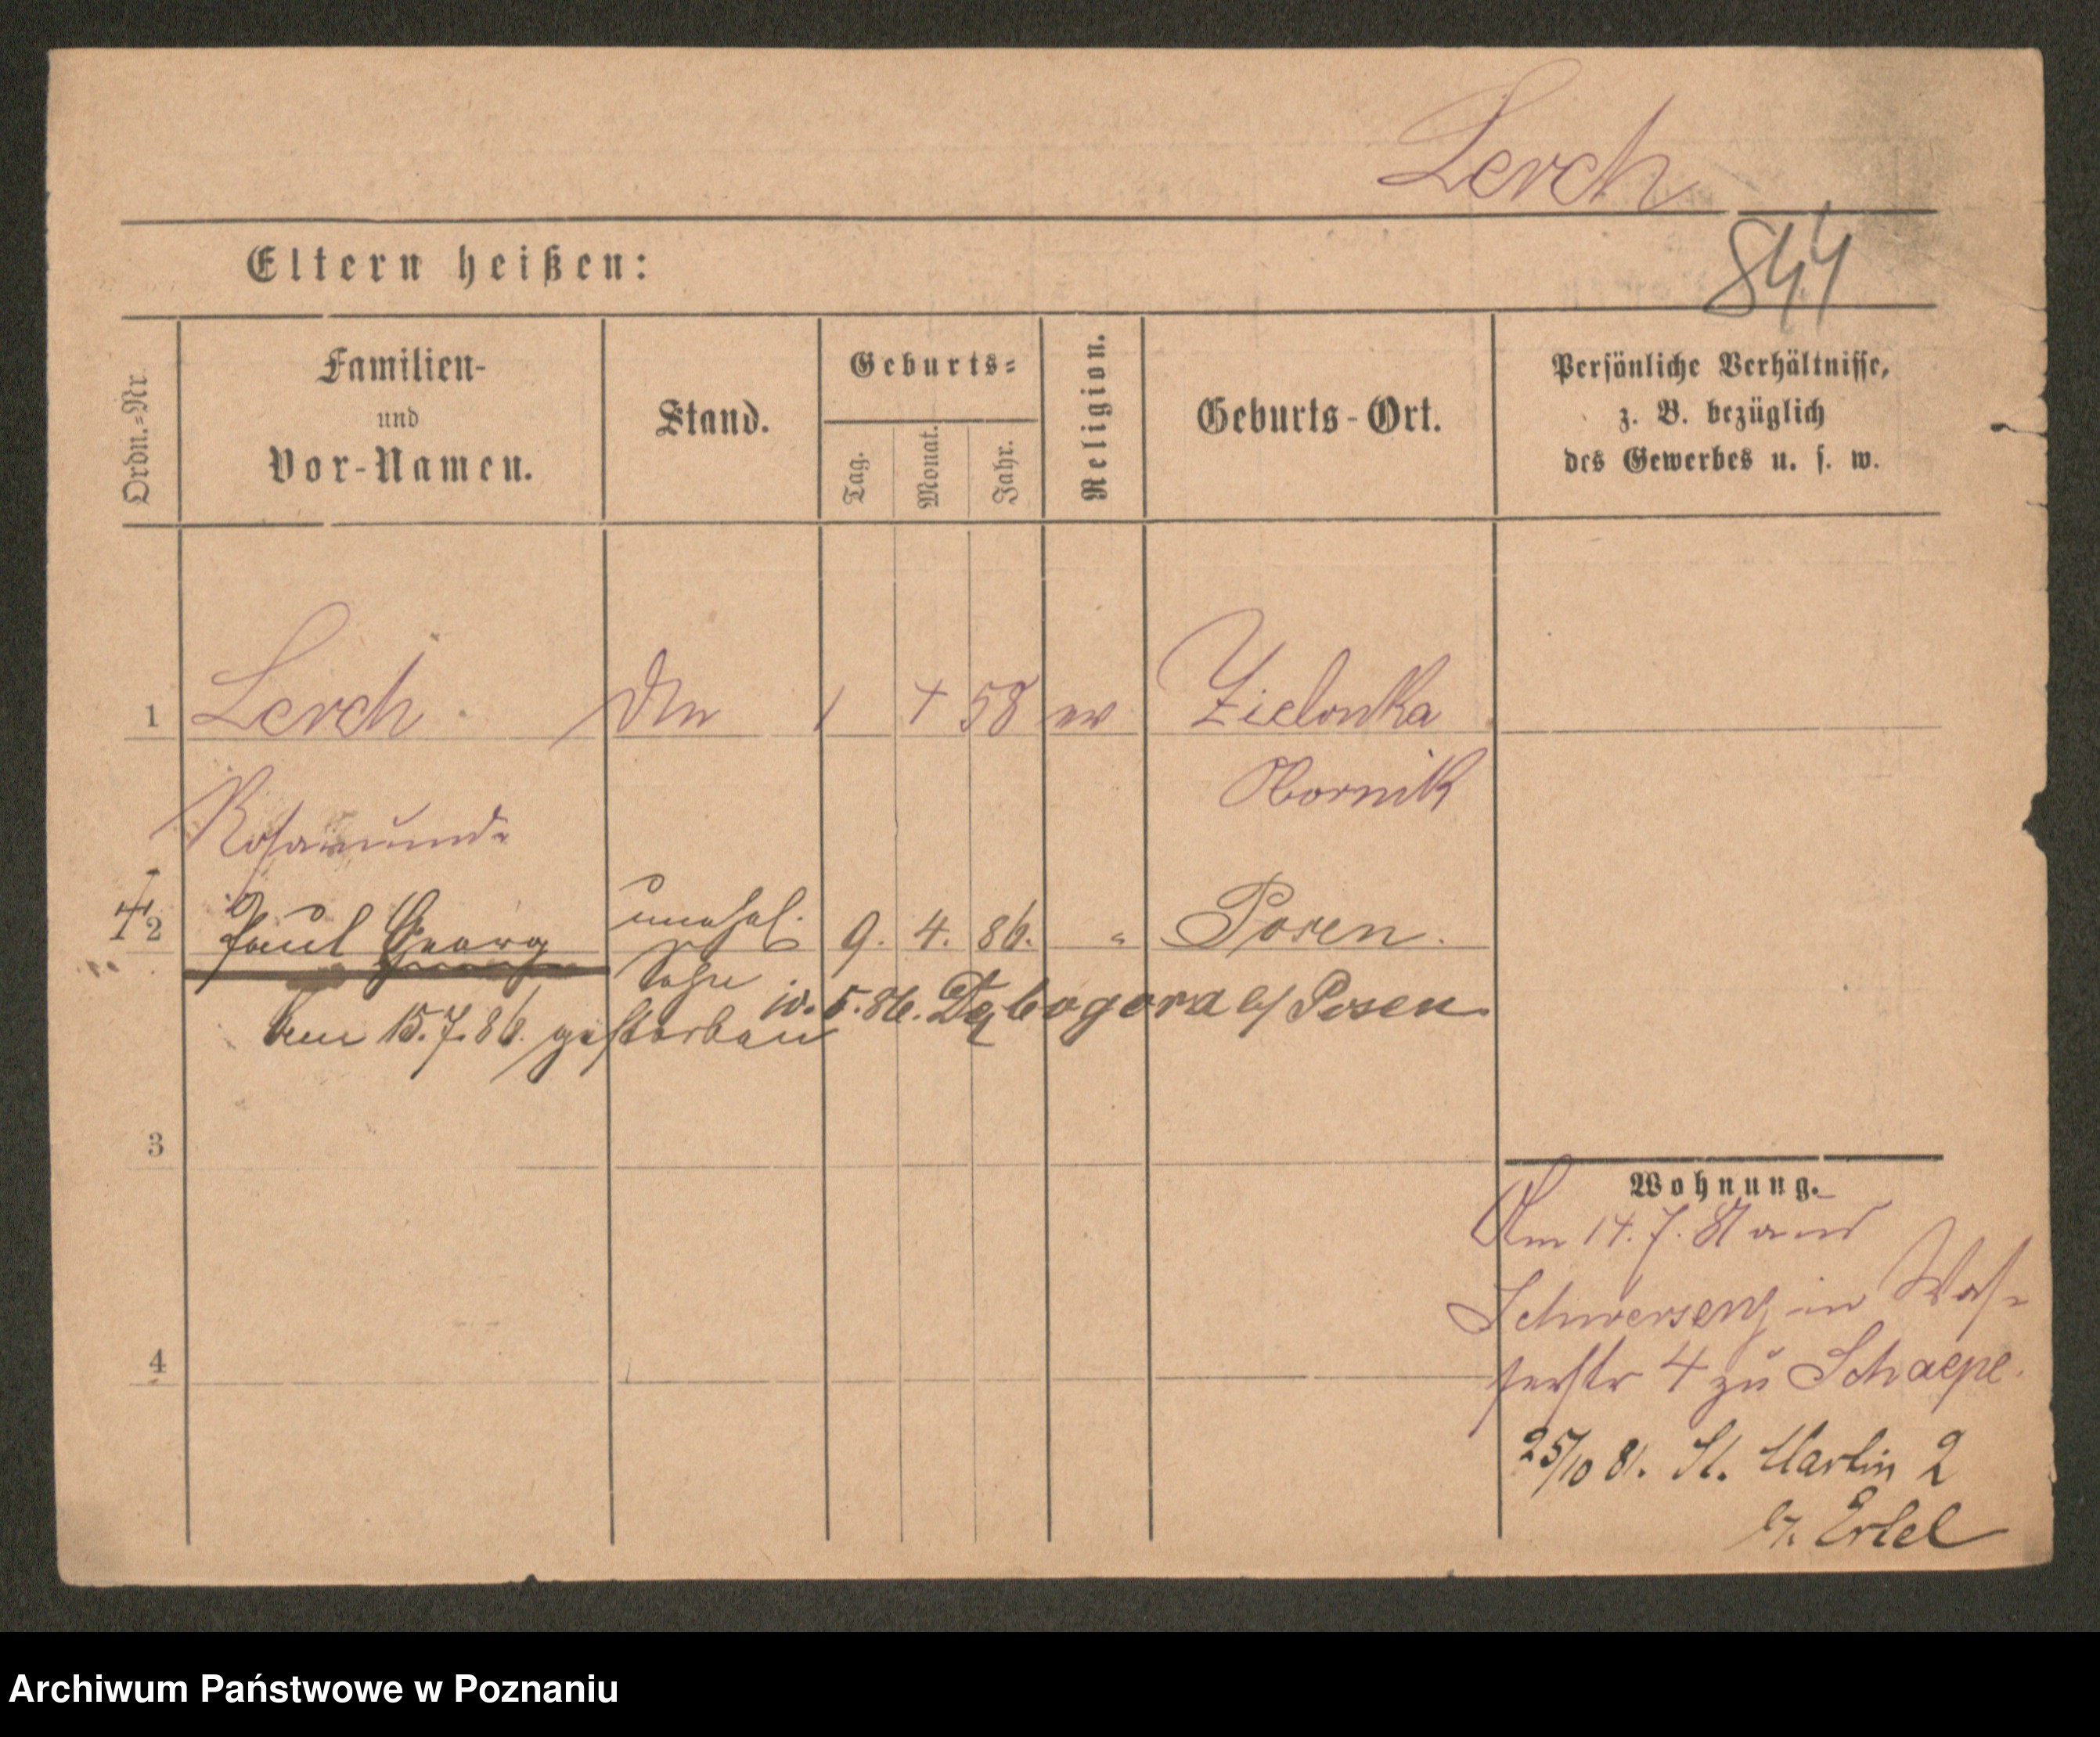 Lerch
844
Eltern heißen:
Ordn.-Nr.
Familien-
und
Vor-Namen.
Stand.
Geburts-
Tag.
Monat.
Jahr.
Religion.
Geburts-Ort.
Persönliche Verhältnisse,
z. B. bezüglich
des Gewerbes u. s. w.
1 Lerch 1 4 58 ev Zielonka
Obornik
Rosamunde
2 Paul Georg unehel. 9. 4. 86. " Posen.
Sohn
5. 86. Dębogora b/ Posen
den 15.7.86. gestorben
3
4
Wohnung.
Am 14. 7. 81 aus
Schwersenz in Was-
serstr 4 zu Schaepe.
25/10 81. St. Martin 2
b/. Ertel
Archiwum Państwowe w Poznaniu